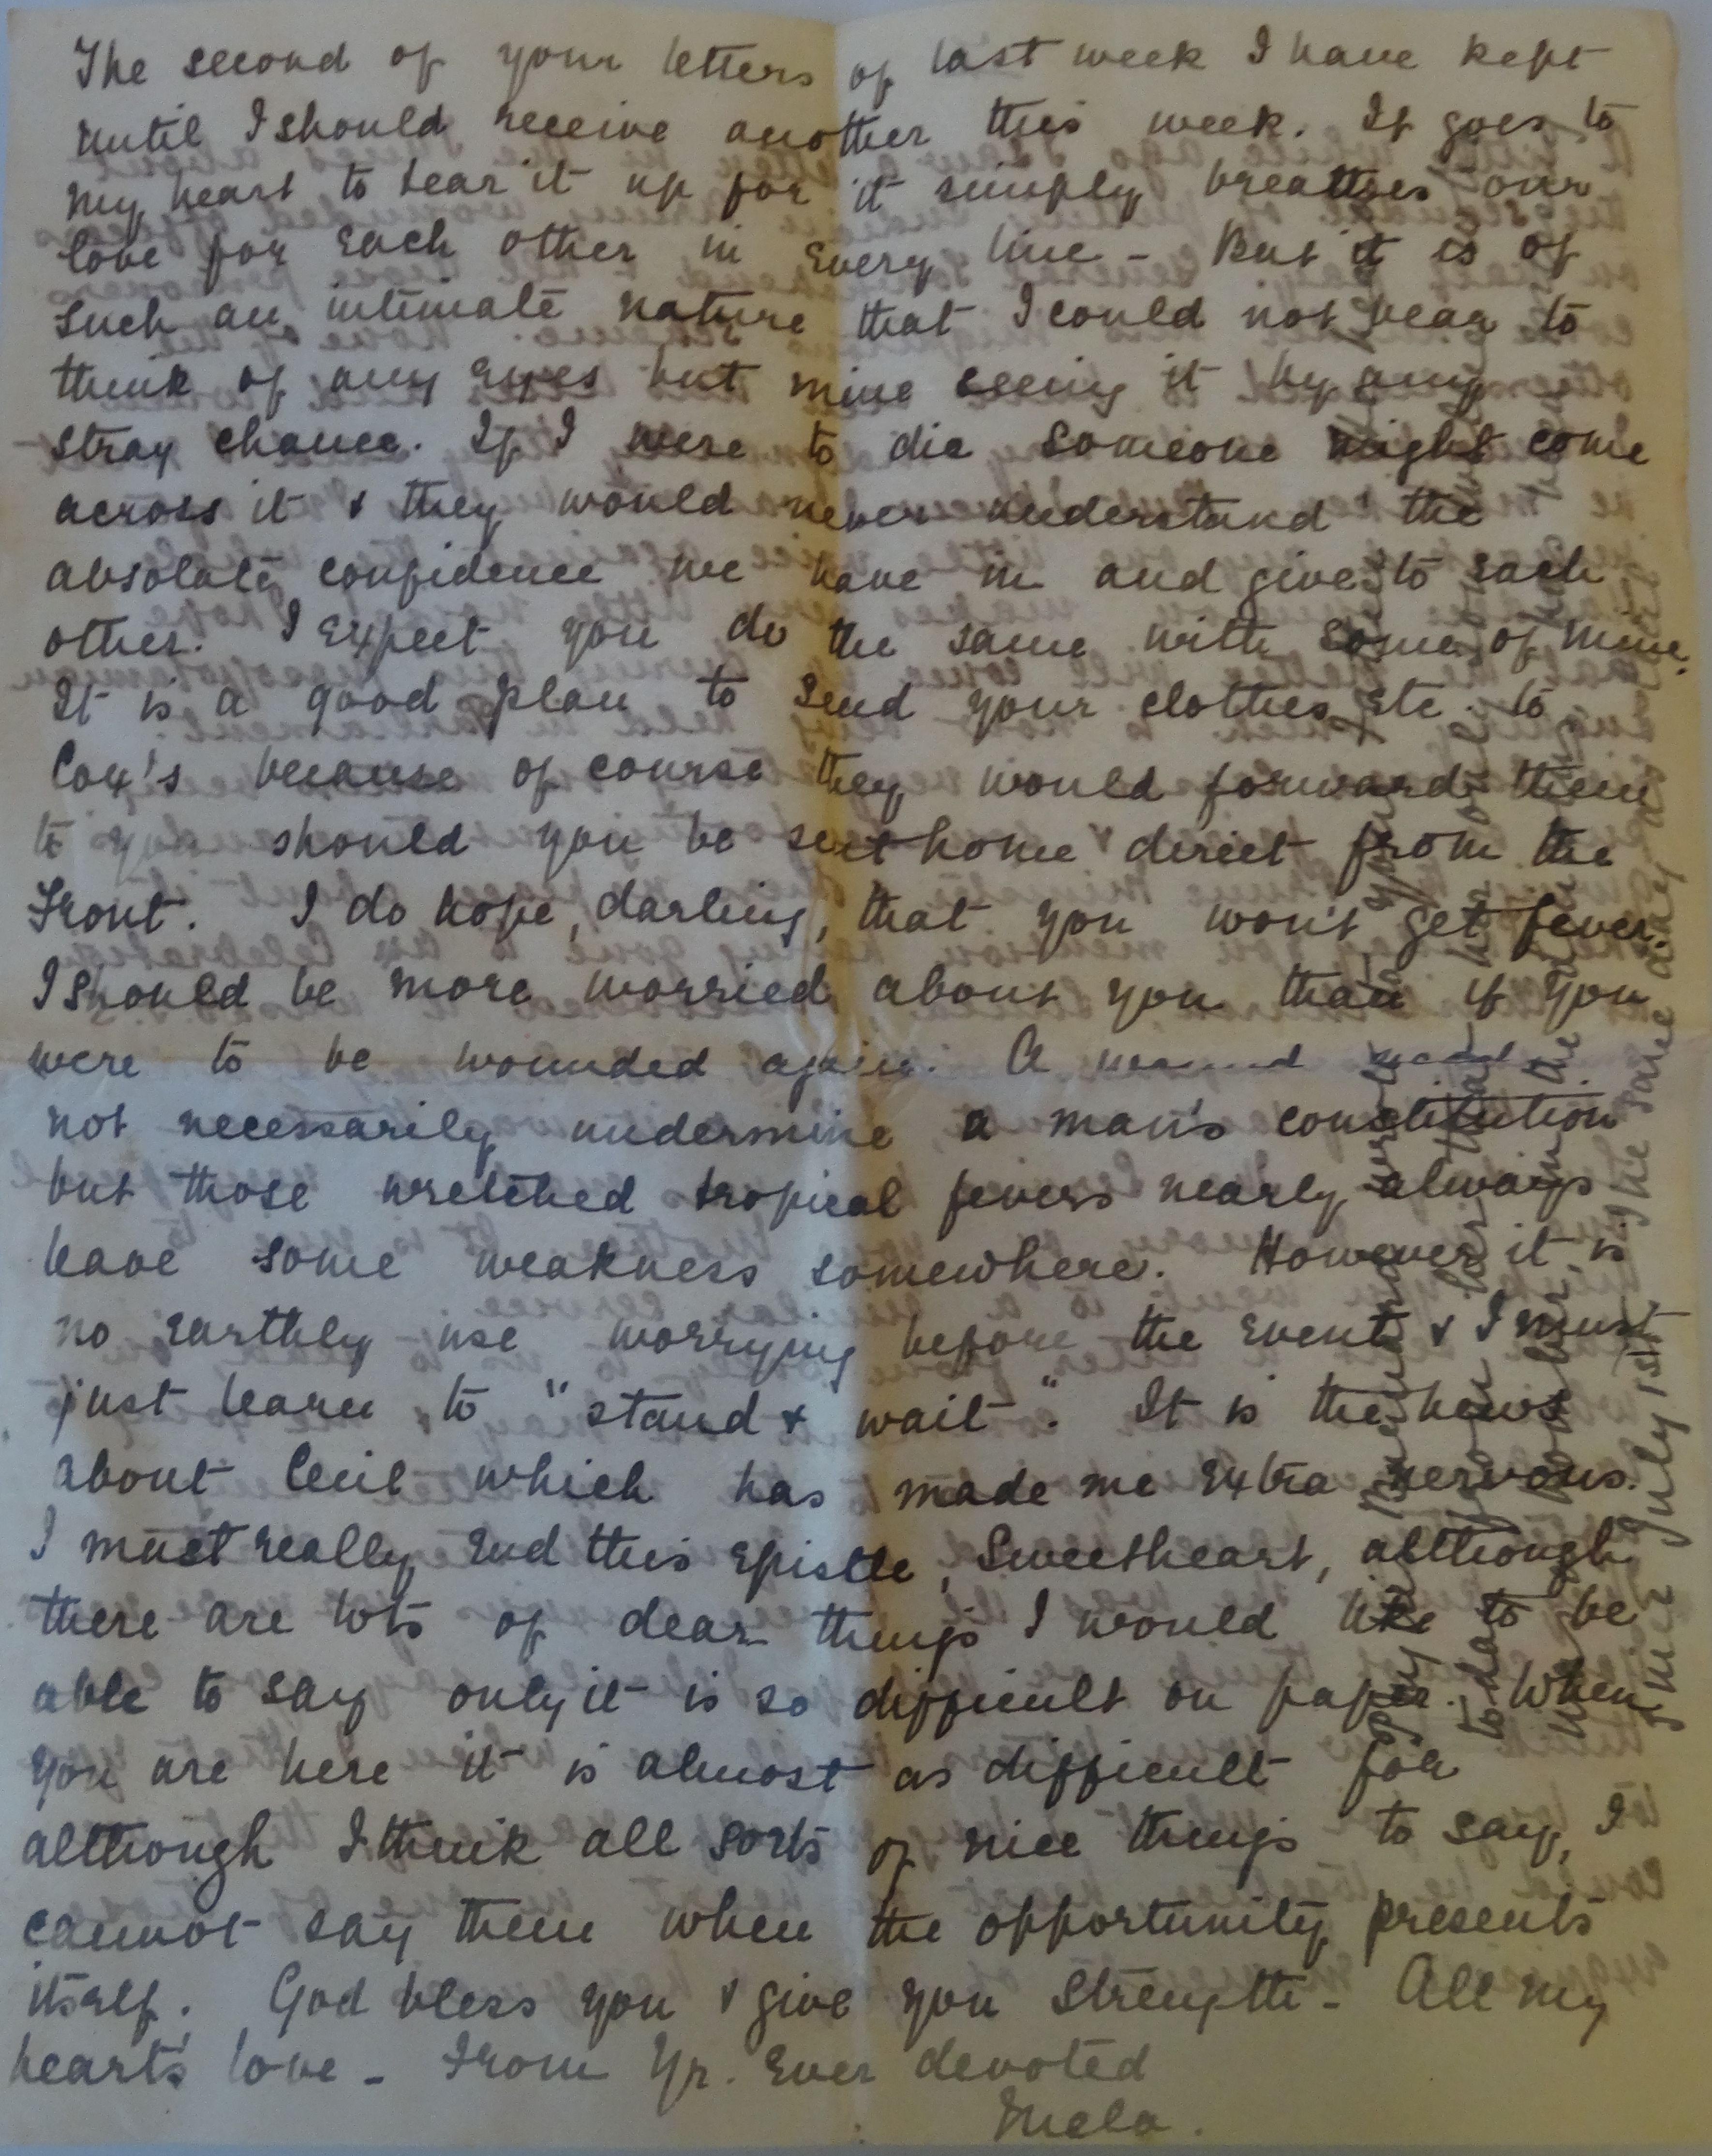 The second of your letters of last week I have kept
until I should receive another this week. It goes to
my heart to tear it up for it simply breathes our
love for each other in every line - But it is of
such an intimate nature that I could not bear to
think of any eyes but mine seeing it by any
stray chance. If I were to die someone might come
across it & they would never understand the
absolute confidence we have in and give to each
other. I expect you do the same with some of mine.
It is a good plan to send your clothes etc. to
Cox's because of course they would forward them
to you should you be sent home direct from the
Front. I do hope, darling, that you won't get fever.
I should be more worried about you than if you
were to be wounded again. A wound need
not necessarily undermine a man's constitution
but those wretched tropical fevers nearly always
leave some weakness somewhere. However it is
no earthly use worrying before the event & I must
just learn to "stand & wait". It is the news
about Cecil which has made me extra nervous.
I must really end this epistle, Sweetheart, although
there are lots of dear things I would like to be
able to say only it is so difficult on paper. When
you are here it is almost as difficult for
although I think all sorts of nice things to say, I
cannot say them when the opportunity presents
itself. God bless you & give you strength - All my
heart's love - From Yr. Ever devoted
the same day as
July 1st